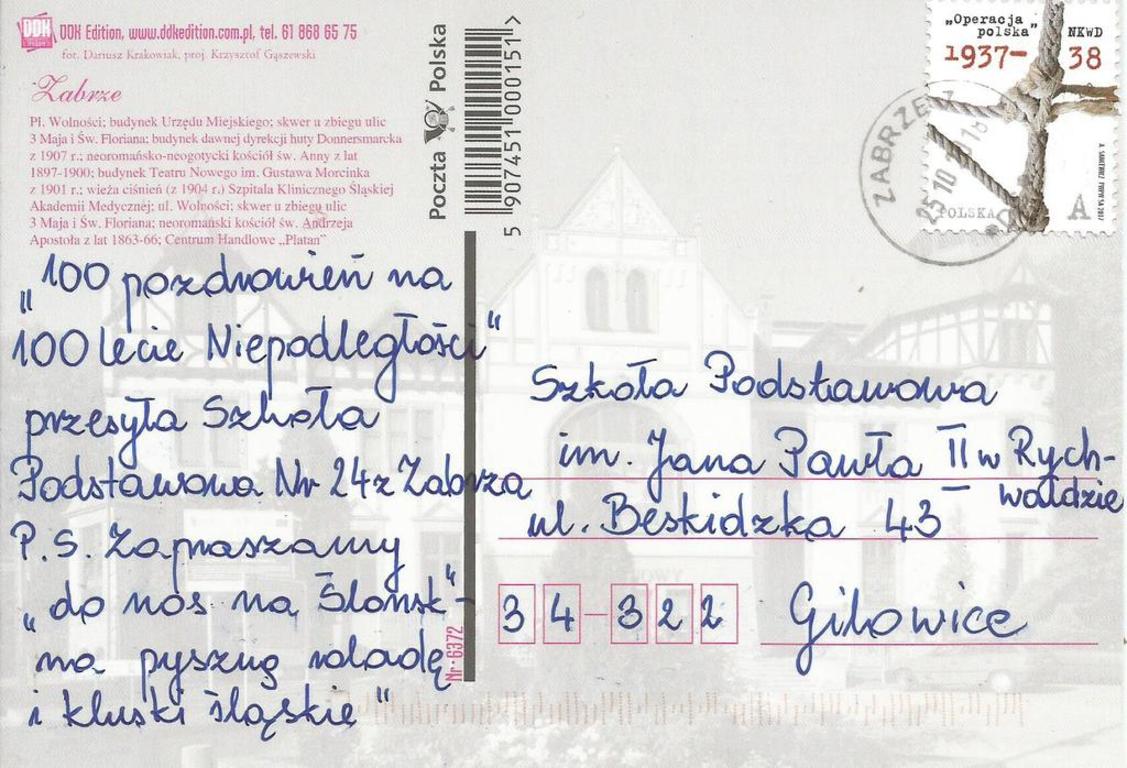 DDK Edition, www.ddkedition.com.pl, tel. 61 868 65 75
fot. Dariusz Krakowiak, proj. Krzysztof Gąszewski
Zabrze
Pl. Wolności; budynek Urzędu Miejskiego; skwer u zbiegu ulic
3 Maja i Św. Floriana; budynek dawnej dyrekcji huty Donnersmarcka
z 1907 r.; neoromańsko-neogotycki kościół św. Anny z lat
1897-1900; budynek Teatru Nowego im. Gustawa Morcinka
z 1901 r.; wieża ciśnień (z 1904 r.) Szpitala Klinicznego Śląskiej
Akademii Medycznej; ul. Wolności; skwer u zbiegu ulic
3 Maja i Św. Floriana; neoromański kościół św. Andrzeja
Apostoła z lat 1863-66; Centrum Handlowe „Platan"
Poczta Polska
5 907451 000151 >
„Operacja
polska"
NKWD
1937-38
POLSKA
A
ZABRZE
23.10
„100 pozdrowień na
100 lecie Niepodległości"
przesyła Szkoła
Podstawowa Nr 24 z Zabrza
P.S. Zapraszamy
„do nos na Ślonsk"-
na pyszną roladę
i kluski śląskie"
Nr 6372
Szkoła Podstawowa
im. Jana Pawła II w Rych-
wałdzie
ul. Beskidzka 43
34-322 Gilowice